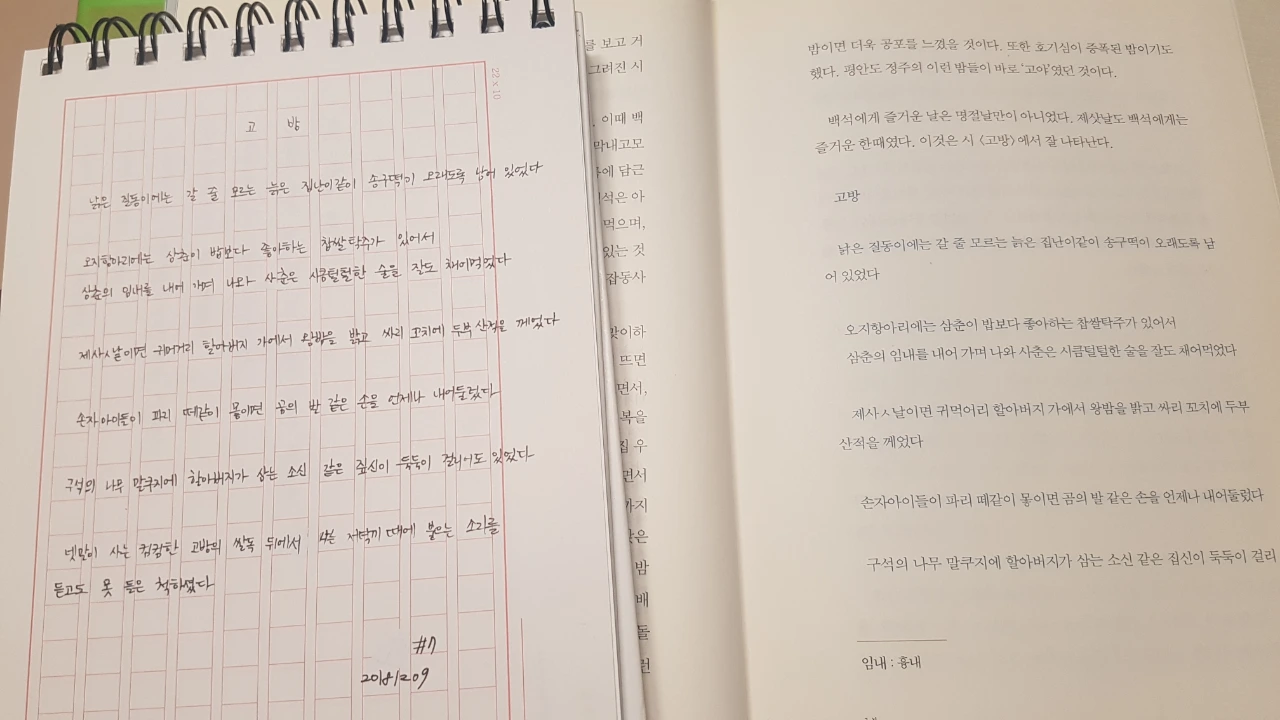 22 x 10
고 방
낡은 질동이에는 갈 줄 모르는 늙은 집난이같이 송구떡이 오래도록 남어 있었다
오지항아리에는 삼춘이 밥보다 좋아하는 찹쌀탁주가 있어서
삼춘의 임내를 내어 가며 나와 사춘은 시큼털털한 술을 잘도 채어먹었다
제사ㅅ날이면 귀머거리 할아버지 가에서 왕밤을 밝고 싸리 꼬치에 두부산적을 께었다
손자아이들이 파리 떼같이 뫃이면 곰의 발 같은 손을 언제나 내어둘렀다
구석의 나무 말쿠지에 할아버지가 삼는 소신 같은 짚신이 둑둑이 걸리어도 있었다
녯말이 사는 컴컴한 고방의 쌀독 뒤에서 나는 저녁끼 때에 불으는 소리를
듣고도 못 들은 척하였다
#7
20181209
를 보고 거
그러진 시
. 이때 백
막내고모
에 담근
석은 아
먹으며,
있는 것
잡동사
맞이하
뜨면
면서,
복을
집 우
면서
까지
밤
배
돌
런
밤이면 더욱 공포를 느꼈을 것이다. 또한 호기심이 증폭된 밤이기도
했다. 평안도 정주의 이런 밤들이 바로 ‘고야’였던 것이다.
백석에게 즐거운 날은 명절날만이 아니었다. 제삿날도 백석에게는
즐거운 한때였다. 이것은 시 〈고방〉에서 잘 나타난다.
고방
낡은 질동이에는 갈 줄 모르는 늙은 집난이같이 송구떡이 오래도록 남
어 있었다
오지항아리에는 삼춘이 밥보다 좋아하는 찹쌀탁주가 있어서
삼춘의 임내를 내어 가며 나와 사춘은 시큼털털한 술을 잘도 채어먹었다
제사ㅅ날이면 귀먹어리 할아버지 가에서 왕밤을 밝고 싸리 꼬치에 두부
산적을 께었다
손자아이들이 파리 떼같이 뫃이면 곰의 발 같은 손을 언제나 내어둘렀다
구석의 나무 말쿠지에 할아버지가 삼는 소신 같은 집신이 둑둑이 걸리
임내 : 흉내